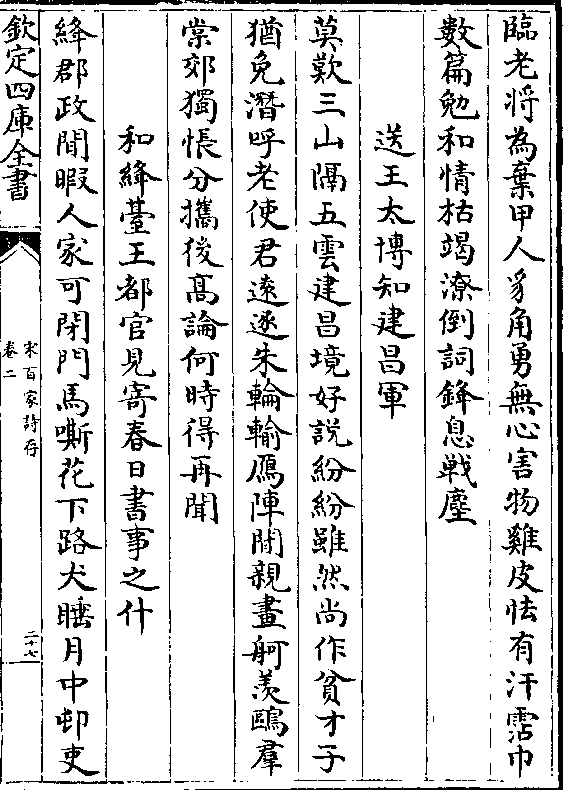 臨老將為棄甲人豸角勇無心害物雞皮怯有汗霑巾
數篇勉和情枯竭潦倒詞鋒息戦塵
送王太博知建昌軍
莫歎三山隔五雲建昌境好説紛紛雖然尚作貧才子
猶免潛呼老使君逺逐朱輪輸鴈陣閒親畫舸羡鷗羣
棠郊獨悵分攜後髙論何時得再聞
和絳臺王都官見寄春日書事之什
絳郡政閒暇人家可閉門馬嘶花下路犬睡月中邨吏
欽定四庫全書
宋百家詩存
卷二
二十七